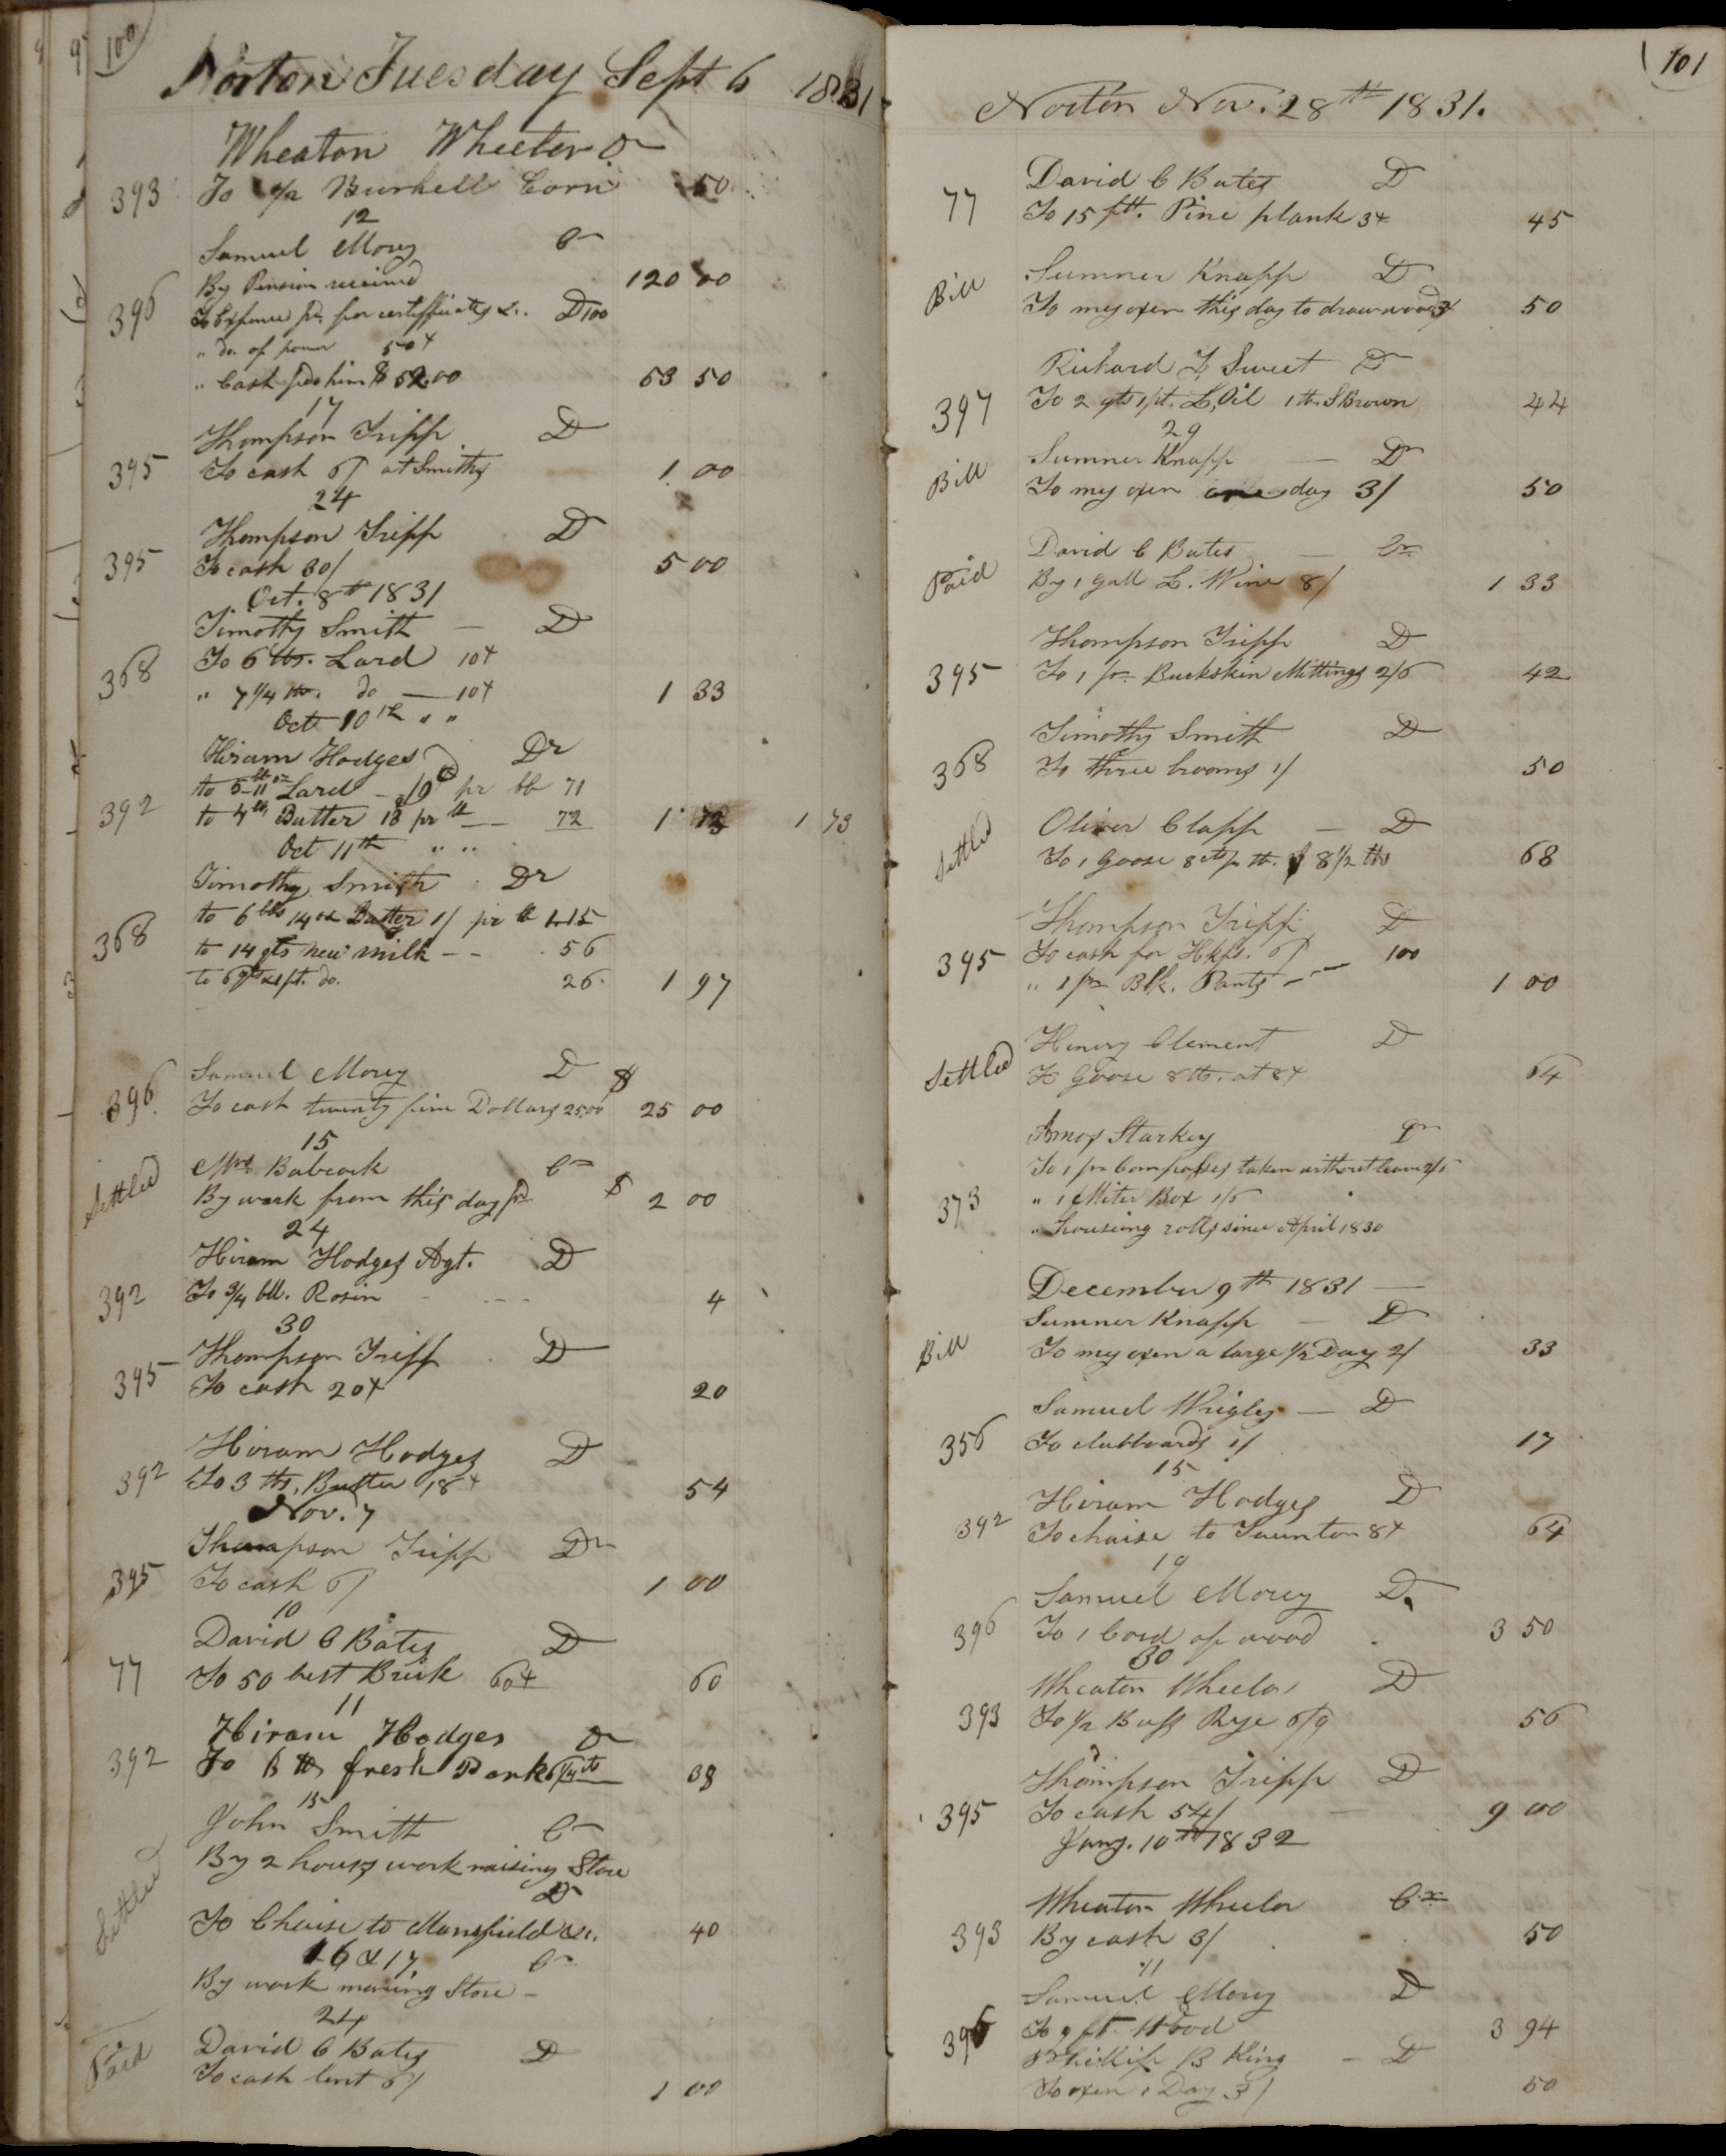 100
Norton Tuesday Sept 6 1831
Wheaton Wheeler Dr
393 To 1/2 Bushell Corn 50
12
Samuel Morey Cr
By Pension received 120 00
396 To Expence pd for certifficates &c. D 100
" do. of power 50 ¢
" Cash pd him $ 52.00 53 50
17
Thompson Tripp D
395 To cash 6/ at Smiths 1 00
24
Thompson Tripp D
395 To cash 30/ 5 00
Oct. 8th 1831
Timothy Smith — D
368 To 6 lbs. Lard 10 ¢
" 7 1/4 lb. do — 10 ¢ 1 33
Oct 10th " "
Hiram Hodges Dr
to 5 lb 11 oz Lard — pr lb 71
392 to 4 lb Butter 18 pr lb — 72 1 73 1 73
Oct 11th " "
Timothy Smith Dr
to 6 lbs 14 oz Butter 1/ pr lb 1.15
368 to 14 qts new milk - - 56
to 6 qts & 1 pt. do. 26 1 97
Samuel Morey D $
396 To cash twenty five Dollars 25.00 25 00
15
Mrs Babcock Cr
Settled By work from this day pd $ 2 00
24
Hiram Hodges Agt. D
392 To 3/4 lb. Rosin 4
30
Thompson Tripp D
395 To cash 20 ¢ 20
Hiram Hodges D
392 To 3 lbs. Butter 18 ¢ 54
Nov. 7
Thompson Tripp Dr
395 To cash 6/ 1 00
10
David C Bates D
77 To 50 best Brick 60 ¢ 60
11
Hiram Hodges Dr
392 To lbs fresh Pork 38
15
John Smith Cr
By 2 hours work raising Store
D
Settled To Chaise to Mansfield &c. 40
16 & 17 Cr
By work moving Store -
24
David C Bates D
Paid To cash lent 6/ 1 00
101
Norton Nov. 28th 1831.
David C Bates D
77 To 15 ft. Pine plank 3 ¢ 45
Sumner Knapp D
Bill To my oxen this day to draw wood 3/ 50
Richard Sweet D
397 To 2 qts 1 pt. L, Oil 1 lb. S Brown 44
29
Sumner Knapp — Dr
Bill To my oxen one day 3/ 50
David C Bates — Cr
Paid By 1 Gall L. Wine 8/ 1 33
Thompson Tripp D
395 To 1 pr Buckskin Mittings 2/6 42
Timothy Smith D
368 To three brooms 1/ 50
Oliver Clapp — D
Settled To 1 Goose 8 cts p lb. 8 1/2 lbs 68
Thompson Tripp D
395 To cash for Hkfs. 6/ 100
" 1 pr Blk. Pants - - 1 00
Henery Clement D
Settled To Goose 8 lb. at 8 ¢ 64
Amos Starkey Dr
To 1 pr Compasses taken without leave
373 " 1 Miter Box 1/6
" housing rolls since April 1830
December 9th 1831 —
Sumner Knapp — D
Bill To my oxen a large 1/2 Day 2/ 33
Samuel Wrigley — D
356 To clabboards 1/ 17
15
Hiram Hodges D
392 To chaise to Taunton 8 ¢ 64
19
Samuel Morey D.
396 To 1 Cord of wood 3 50
30
Wheaton Wheelor D
393 To 1/2 Bush Rye 6/9 56
Thompson Tripp D
395 To cash 54/ — 9 00
Jany. 10th 1832
Wheaton Wheelor Cr
393 By cash 3/ 50
11
Samuel Morey D
396 To 9 ft. Wood 3 94
Phillip B King — D
To oxen 1 Day 3/ 50